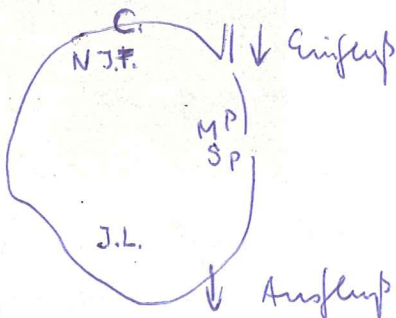 C.
N J.F.
Einfluß
MP
SP
J.L.
Ausfluß